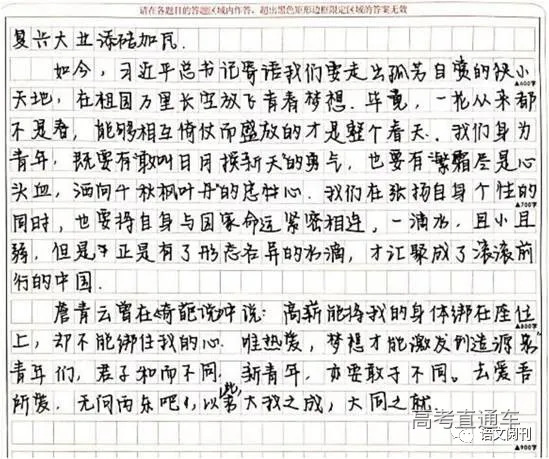 请在各题目的答题区域内作答,超出黑色矩形边框限定区域的答案无效
复兴大业添砖加瓦.
如今,习近平总书记寄语我们要走出孤芳自赏的狭小
▲600字
天地,在祖国万里长空放飞青春梦想.毕竟,一花从来都
不是春,能够相互倚仗而盛放的才是整个春天.我们身为
青年,既要有"敢叫日月换新天"的勇气,也要有"繁霜尽是心
头血,洒向千秋枫叶丹"的忠忱心.我们在张扬自身个性的
▲700字
同时,也要将自身与国家命运紧密相连,一滴水,且小且
弱,但是正是有了形态各异的水滴,才汇聚成了滚滚前
行的中国.
詹青云曾在《奇葩说》中说:高薪能将我的身体绑在座位
▲800字
上,却不能绑住我的心.唯热爱,梦想才能激发创造源泉
青年们,君子和而不同.新青年,亦要敢于不同。去爱吾
所爱,无问西东吧!以此大我之成,大同之就
高考直通车
语文阅刊
▲900字